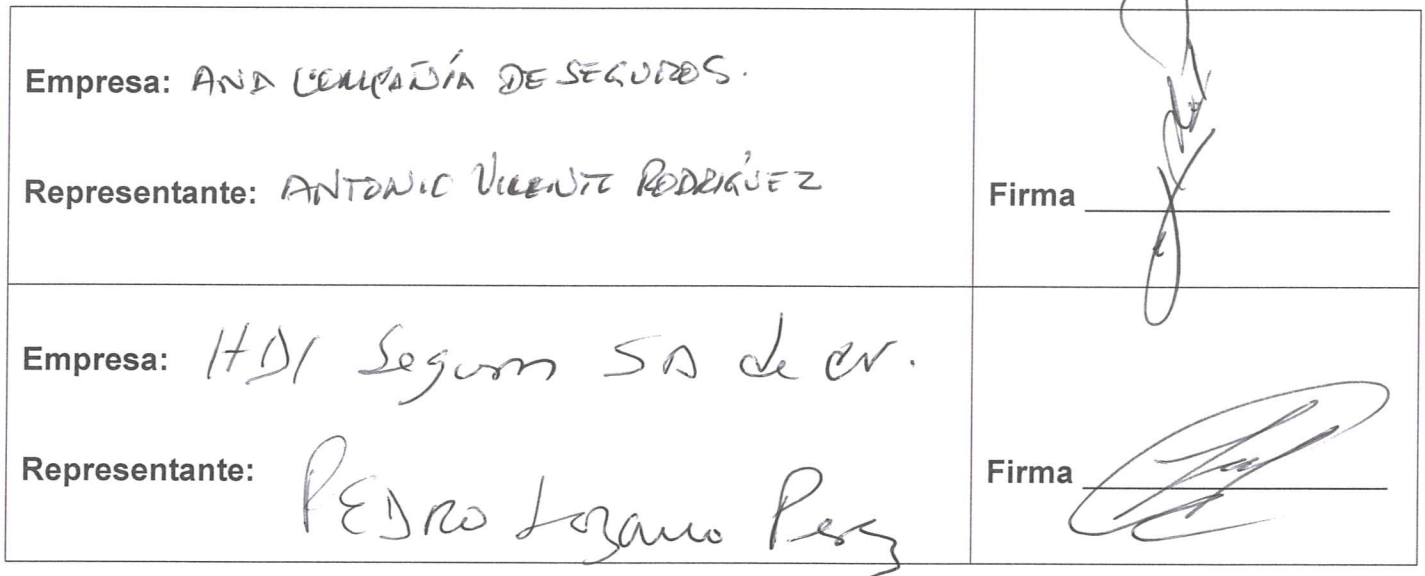 Empresa: ANA COMPAÑÍA DE SEGUROS.
Representante: ANTONIO VICENTE RODRÍGUEZ
Firma
Empresa: HDI Seguros SA de CV.
Representante: PEDRO Lozano Perez
Firma